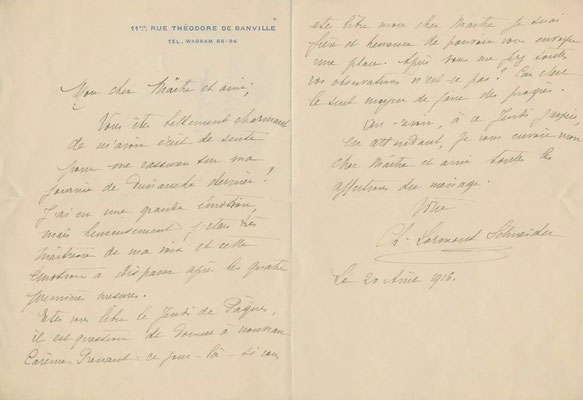 11bis, RUE THÉODORE DE BANVILLE
TÉL. WAGRAM 66-84
Mon cher Maître et ami,
Vous êtes tellement charmant
de m'avoir écrit de suite
pour me rassurer sur ma
journée de Dimanche dernier!
J'ai eu une grande émotion,
mais heureusement j'étais très
maîtresse de ma voix et cette
émotion à disparu après les quatre
premières mesures.
Etes vous libre le Jeudi de Pâques,
il est question de donner à nouveau
Carême Prenant ce jour-là - si vous
êtes libre mon cher Maître je serai
fière et heureuse de pouvoir vous envoyer
une place. Après vous me ferez toutes
vos observations n'est-ce pas? Car c'est
le seul moyen de faire des progrès.
Au-revoir, à ce Jeudi j'espère,
en attendant, je vous envoie mon
cher Maître et ami toutes les
affections du ménage.
Votre
Ch. Lormont Schneider
Le 20 1916.